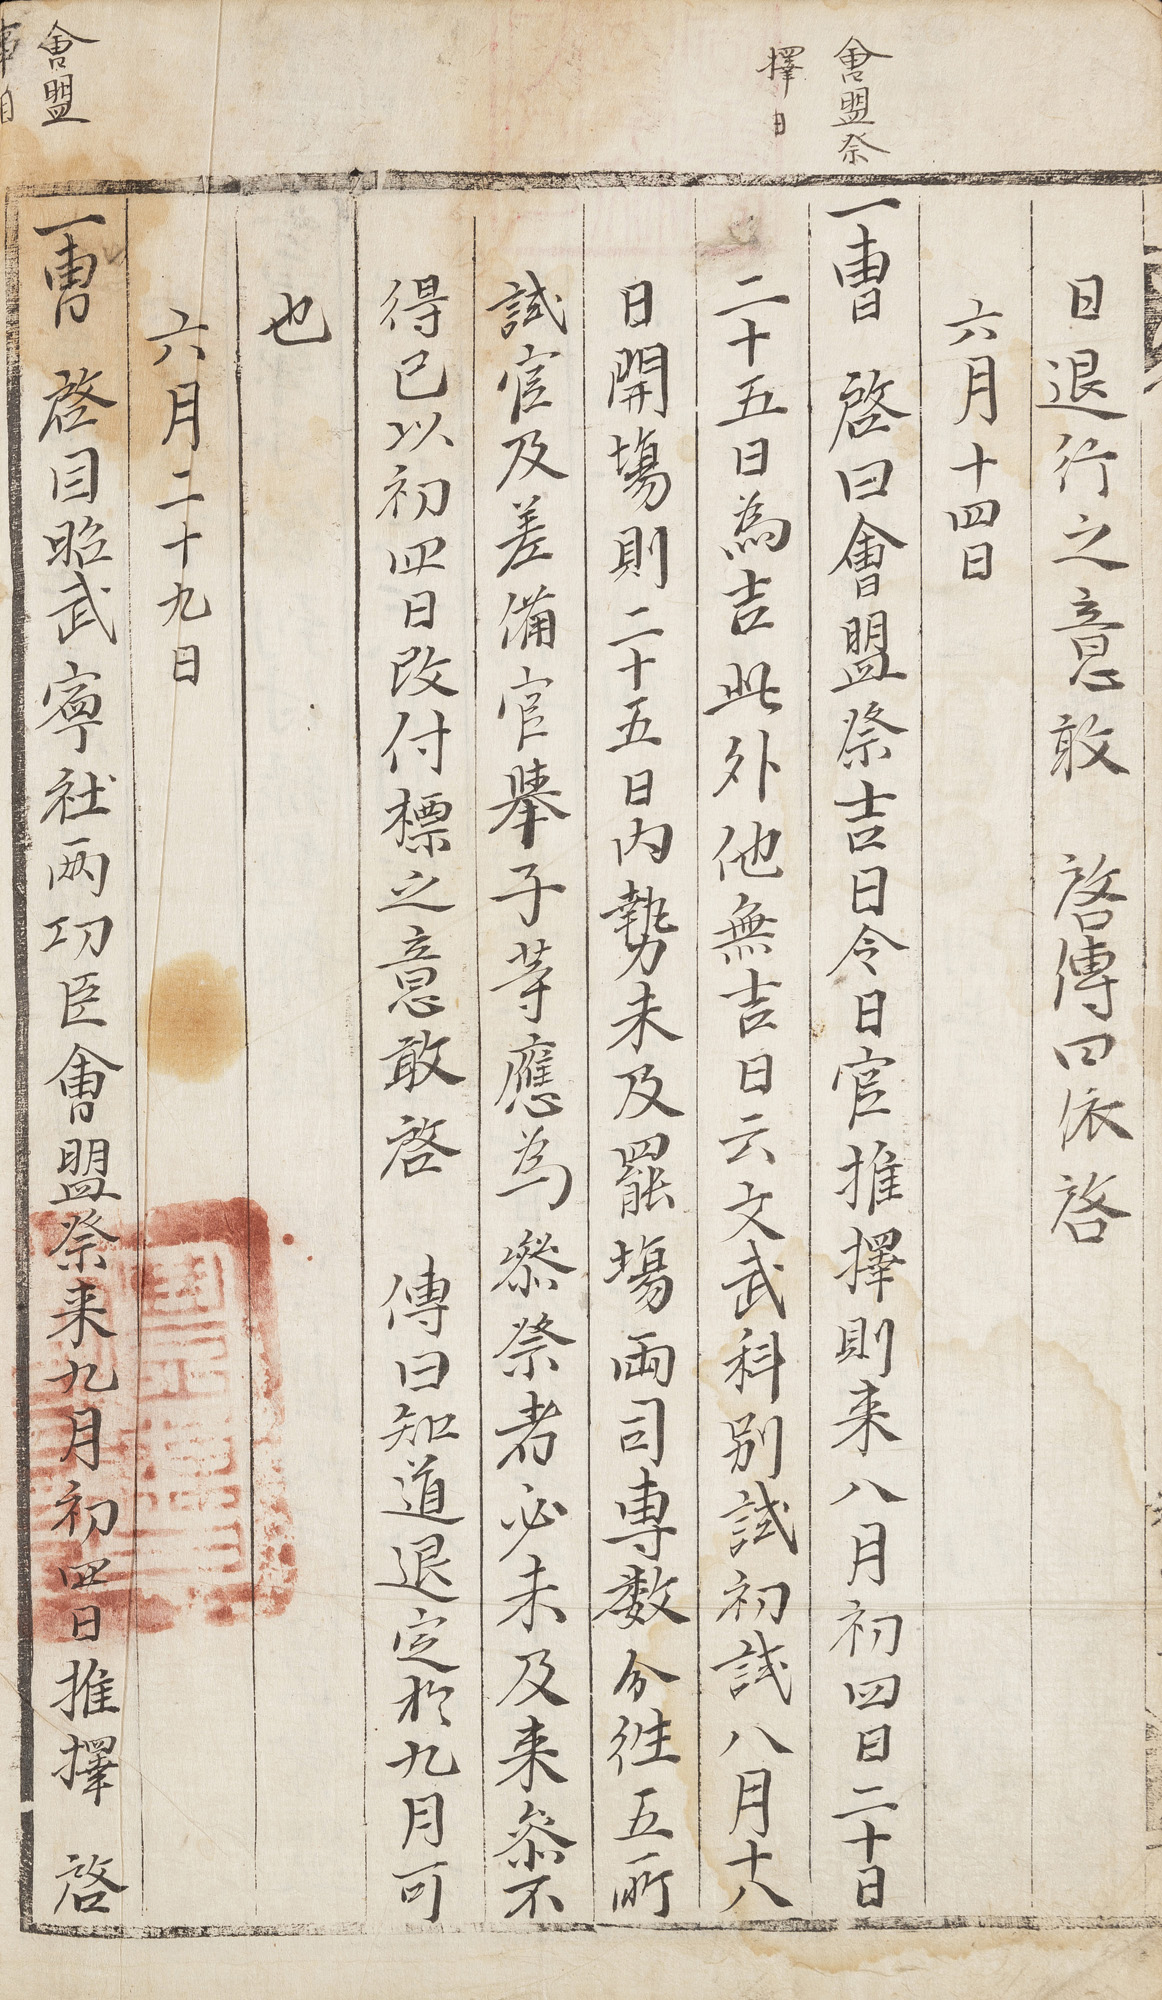 會盟祭
擇日
會盟
事目
日退行之意敢 啓傳曰依啓
六月十四日
一曺 啓曰會盟祭吉日令日官推擇則来八月初四日二十日
二十五日為吉此外他無吉日云文武科別試初試八月十八
日開塲則二十五日內勢未及罷塲兩司專数分徃五所
試官及差備官擧子等應為叅祭者必未及来叅不
得已以初四日改付標之意敢啓 傳曰知道退定於九月可
也
六月二十九日
一曺 啓目昭武寧社両功臣會盟祭来九月初四日推擇 啓